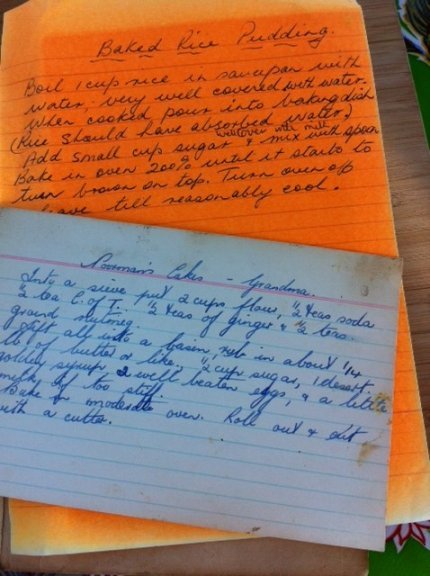 Baked Rice Pudding.
Boil 1 cup rice in saucepan with
water, very well covered with water.
When cooked pour into baking dish
(Rice should have absorbed water.)
wellover with milk
Add small cup sugar & mix with spoon
Bake in oven 200° until it starts to
turn brown on top. Turn oven off
leave till reasonably cool.
Norman's Cakes - Grandma.
Into a sieve put 2 cups flour, 1/2 teas soda
1/2 tea C. of T. 1/2 teas of ginger & 1/2 teas.
ground nutmeg.
Sift all into a basin, rub in about 1/4
lb of butter or like. 1/2 cup sugar, 1 desert
golden syrup, 2 well beaten eggs, & a little
milk if too stiff.
Bake in moderate oven. Roll out & cut
with a cutter.